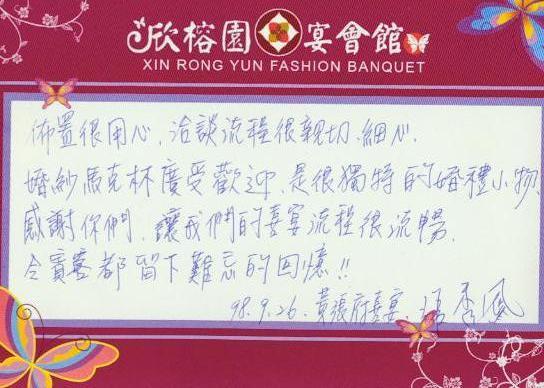 欣榕園宴會館
XIN RONG YUN FASHION BANQUET
佈置很用心,洽談流程很親切、細心.
婚紗馬克杯廣受歡迎,是很獨特的婚禮小物,
感謝你們,讓我們的喜宴流程很流暢,
令賓客都留下難忘的回憶!!
98.9.26.黃張府喜宴.張秀鳳